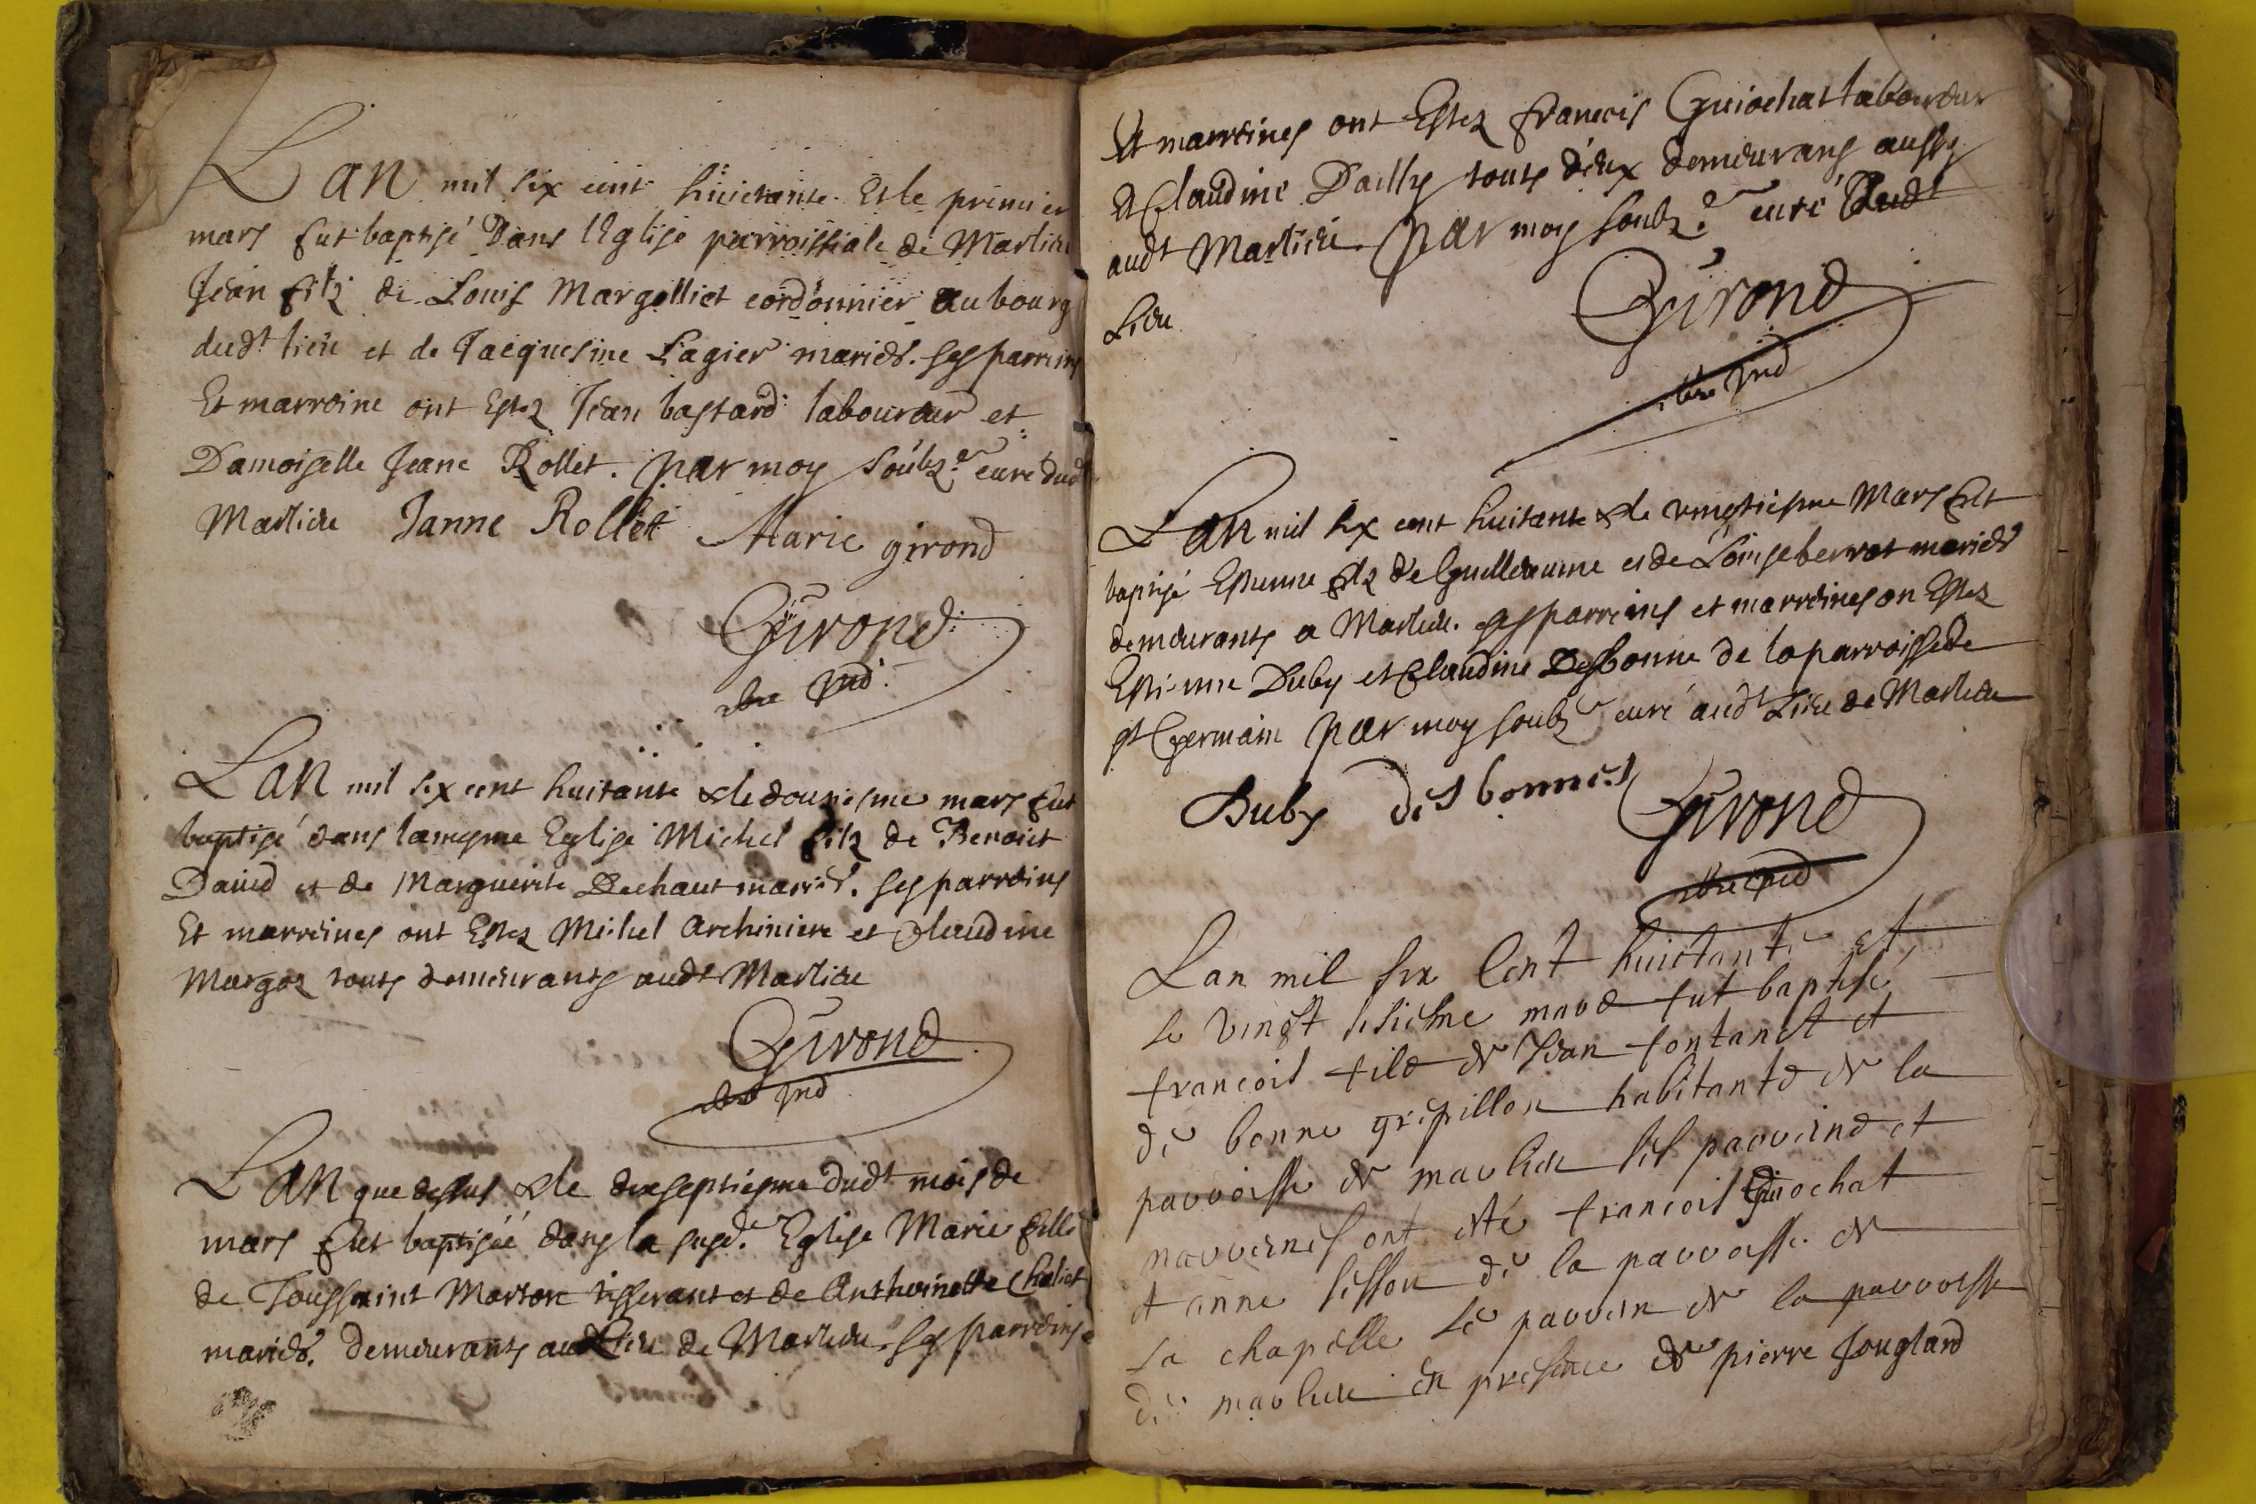 Lan mil six cent huictante. Et le premier
mars fut baptisé Dans lEglise parroissiale de Marlieu
Jean filz de Louis Margolliet cordonnier au bourg
dudt lieu et de Jacquesine Lagier mariés. Ses parreins
Et marreine ont Estez Jean bastard laboureur et
Damoiselle Jeane Rollet. par moy soubz.e curé dudt
Marlieu Janne Rollet Marie girond
Girond
Lan mil six cent huitante & le douziesme mars fut
baptisé dans la mesme Eglise Michel filz de Benoict
David et de Marguerite Dechaut mariés. Ses parreins
Et marreines ont Estez Michel Archiniere et Claudine
Margoz touts demeurants audt Marlieu
Girond
Lan que dessus & le dixseptiesme dudt mois de
mars fut baptiséé dans la susd.e Eglise Marie fille
de Toussaint Morton tisserant et de Anthoinette Choliet
mariés. Demeurants audt Lieu de Marlieu. Ses parreins
Et marreines ont Estez francois Guiochat laboureur
Et Claudine Dailly touts deux demeurans aussy
audt Marlieu par moy soubz.e curé dudt
Lieu
Girond
Lan mil six cent huitante & le vingtiesme Mars fut
baptisé Estienne filz de Guilleaume et de Loise berrot mariés
demeurants a Marlieu. Ses parreins et marreines on Estez
Estienne Duby et Claudine Desbonne de la parroisse de
St Germain par moy soubz.e curé audt Lieu de Marlieu
Duby des bonnes
Girond
Lan mil six Cent huictante et
le vingt sisiesme mars fut baptisé
francois fils de Jean fontanet et
de bonne gripillon habitants de la
parroisse de marlieu ses parreins et
marreines ont esté francois Guiochat
et anne sisson de la parroisse de
La chapelle le parrein de la parroisse
de marlieu en presence de pierre Jouglard